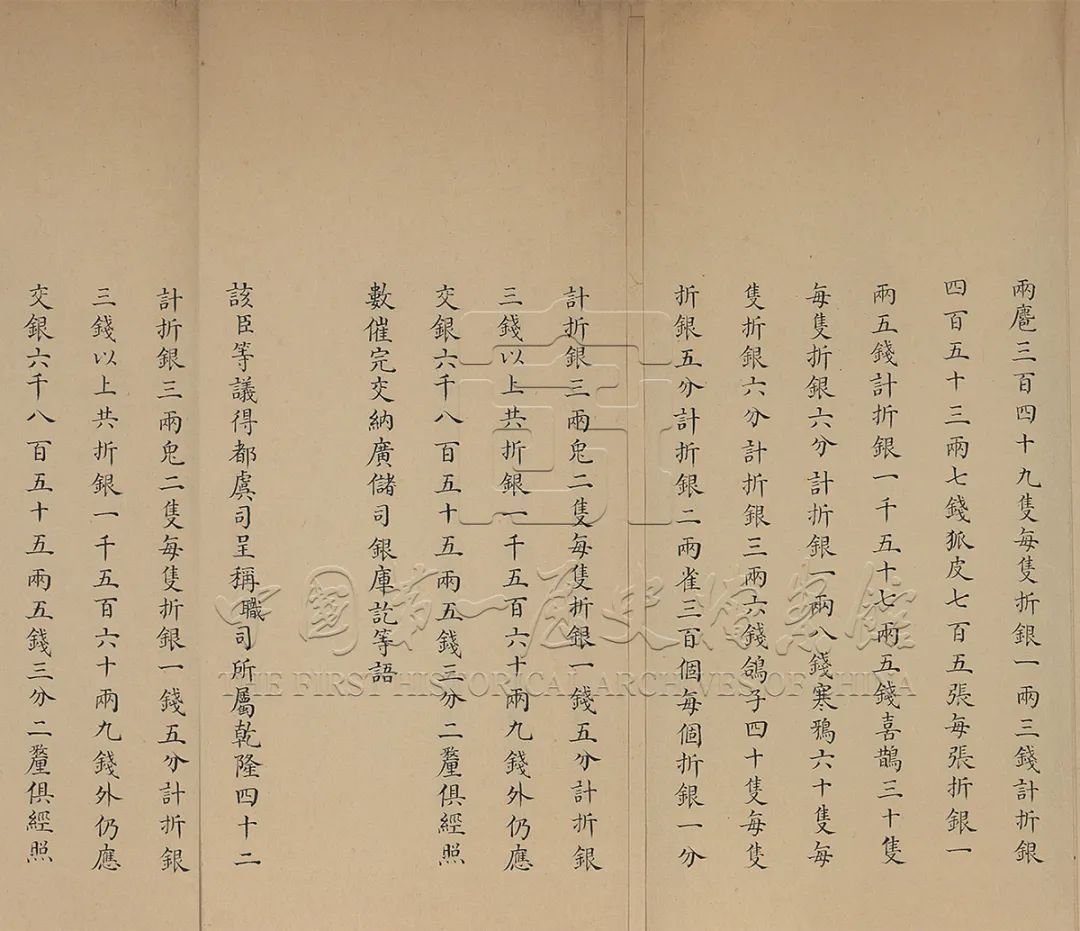 兩麅三百四十九隻每隻折銀一兩三錢計折銀
四百五十三兩七錢狐皮七百五張每張折銀一
兩五錢計折銀一千五十七兩五錢喜鵲三十隻
每隻折銀六分計折銀一兩八錢寒鴉六十隻每
隻折銀六分計折銀三兩六錢鴿子四十隻每隻
折銀五分計折銀二兩雀三百個每個折銀一分
計折銀三兩兎二隻每隻折銀一錢五分計折銀
三錢以上共折銀一千五百六十兩九錢外仍應
交銀六千八百五十五兩五錢三分二釐俱經照
數催完交納廣儲司銀庫訖等語
該臣等議得都虞司呈稱職司所屬乾隆四十二
計折銀三兩兎二隻每隻折銀一錢五分計折銀
三錢以上共折銀一千五百六十兩九錢外仍應
交銀六千八百五十五兩五錢三分二釐俱經照
中國第一歷史檔案館
THE FIRST HISTORICAL ARCHIVES OF CHINA